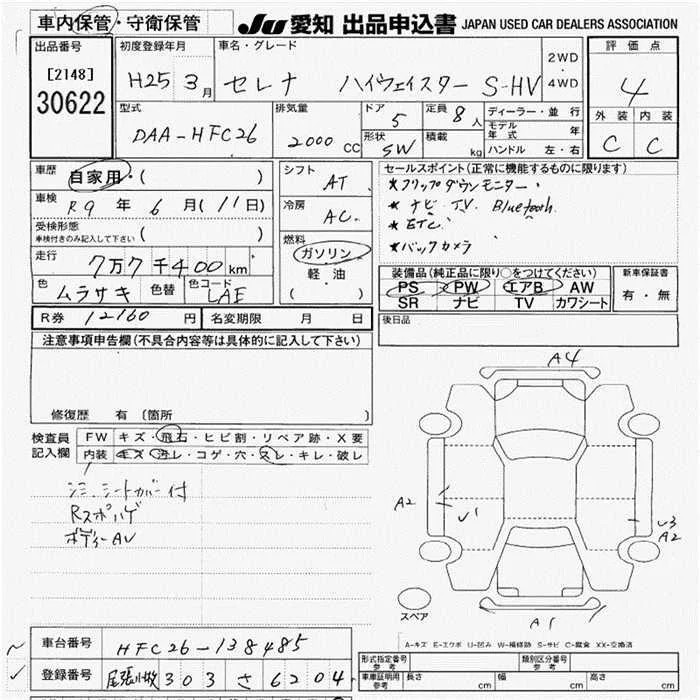 車内保管・守衛保管 JU 愛知 出品申込書 JAPAN USED CAR DEALERS ASSOCIATION
出品番号 初度登録年月 車名・グレード 評価点
[2148] H25 3月 セレナ ハイウェイスター S-HV 2WD・4WD 4
30622
型式 排気量 ドア 定員 外装 内装
DAA-HFC26 2000 CC 5 8人 ディーラー・並行 C C
形状 積載 モデル年式 年
SW kg ハンドル 左・右
車歴 自家用・( ) シフト AT セールスポイント(正常に機能するものに限ります)
車検 R9年 6月(11日) 冷房 AC ★フリップダウンモニター
★ナビ TV. Bluetooth
受検形態 ( ) ★ETC
車検付きのみ記入して下さい
燃料 ガソリン ★バックカメラ
走行 7万7千400km 軽油
( )
装備品(純正品に限り○をつけてください) 新車保証書
色 ムラサキ 色替 色コード LAE PS PW エアB AW 有・無
SR ナビ TV カワシート
R券 12160円 名変期限 月 日 後日品
注意事項申告欄(不具合内容等は具体的に記入して下さい)
修復歴 有 〔箇所 〕
検査員記入欄 FW キズ・飛石・ヒビ割・リペア跡・X要
内装 キズ・汚レ・コゲ・穴・スレ・キレ・破レ
シミ、シートカバー付
Rスポハゲ
ボディーAU
A4
A2 U1 U3
A2
A1
スペア
A-キズ E-エクボ U-凹み W-補修跡 S-サビ C-腐食 XX-交換済
車台番号 HFC26-138485
登録番号 尾張小牧 303 さ 6204
型式指定番号 参考 類別区分番号 参考
車庫証明用 参考 長さ cm 幅 cm 高さ cm